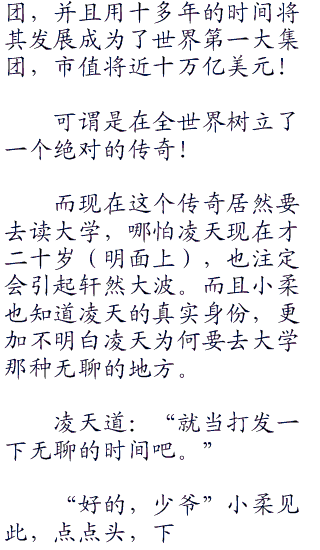 团，并且用十多年的时间将
其发展成为了世界第一大集
团，市值将近十万亿美元！
可谓是在全世界树立了
一个绝对的传奇！
而现在这个传奇居然要
去读大学，哪怕凌天现在才
二十岁（明面上），也注定
会引起轩然大波。而且小柔
也知道凌天的真实身份，更
加不明白凌天为何要去大学
那种无聊的地方。
凌天道：“就当打发一
下无聊的时间吧。”
“好的，少爷”小柔见
此，点点头，下